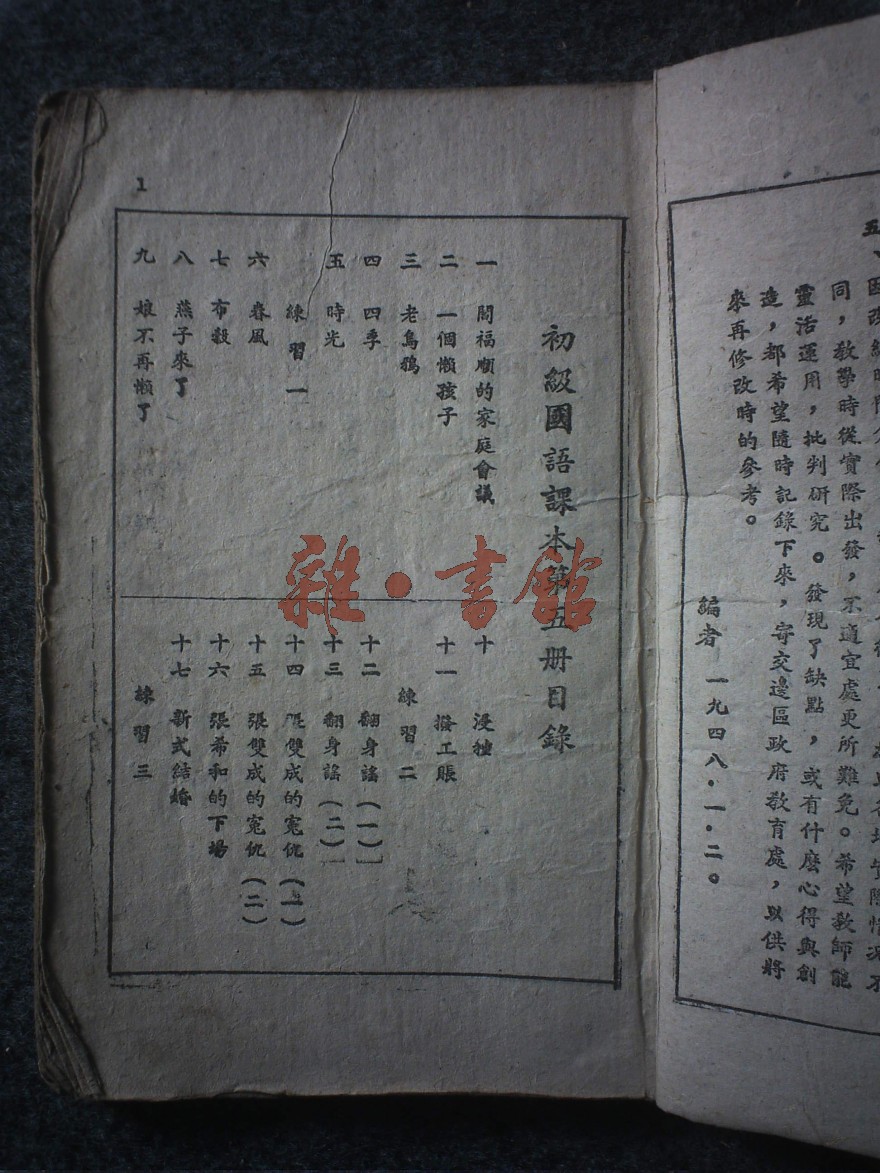 同，教學時從實際出發，不適宜處更所難免。希望教師能
靈活運用，批判研究。發現了缺點，或有什麼心得與創
造，都希望隨時記錄下來，寄交邊區政府教育處，以供將
來再修改時的參考。
編者 一九四八·一·二。
初級國語課本第五册目錄
一 閻福順的家庭會議
二 一個懶孩子
三 老烏鴉
四 四季
五 時光
練習一
六 春風
七 布穀
八 燕子來了
九 娘不再懶了
十 浸種
十一 撥工賬
練習二
十二 翻身謠（一）
十三 翻身謠（二）
十四 張雙成的冤仇（一）
十五 張雙成的冤仇（二）
十六 張希和的下場
十七 新式結婚
練習三
1
雜·書館